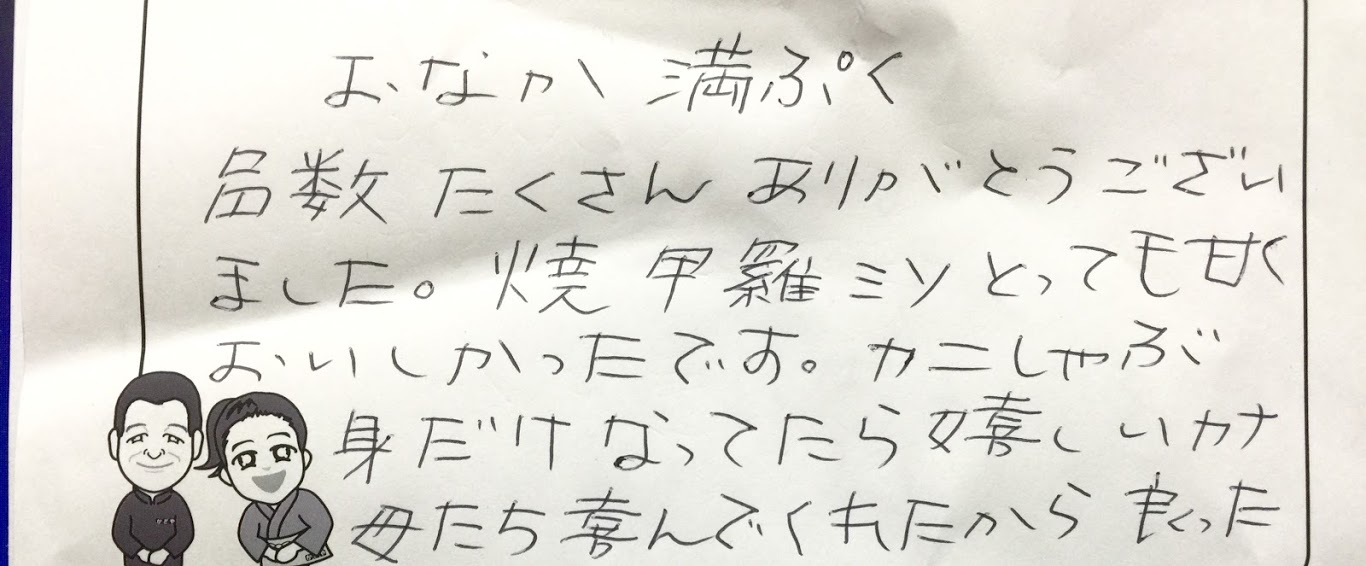 おなか 満ぷく
品数 たくさん ありがとうござい
ました。焼 甲羅ミソ とっても甘く
おいしかったです。カニしゃぶ
身だけ なってたら嬉しいカナ
母たち喜んでくれたから 良かった